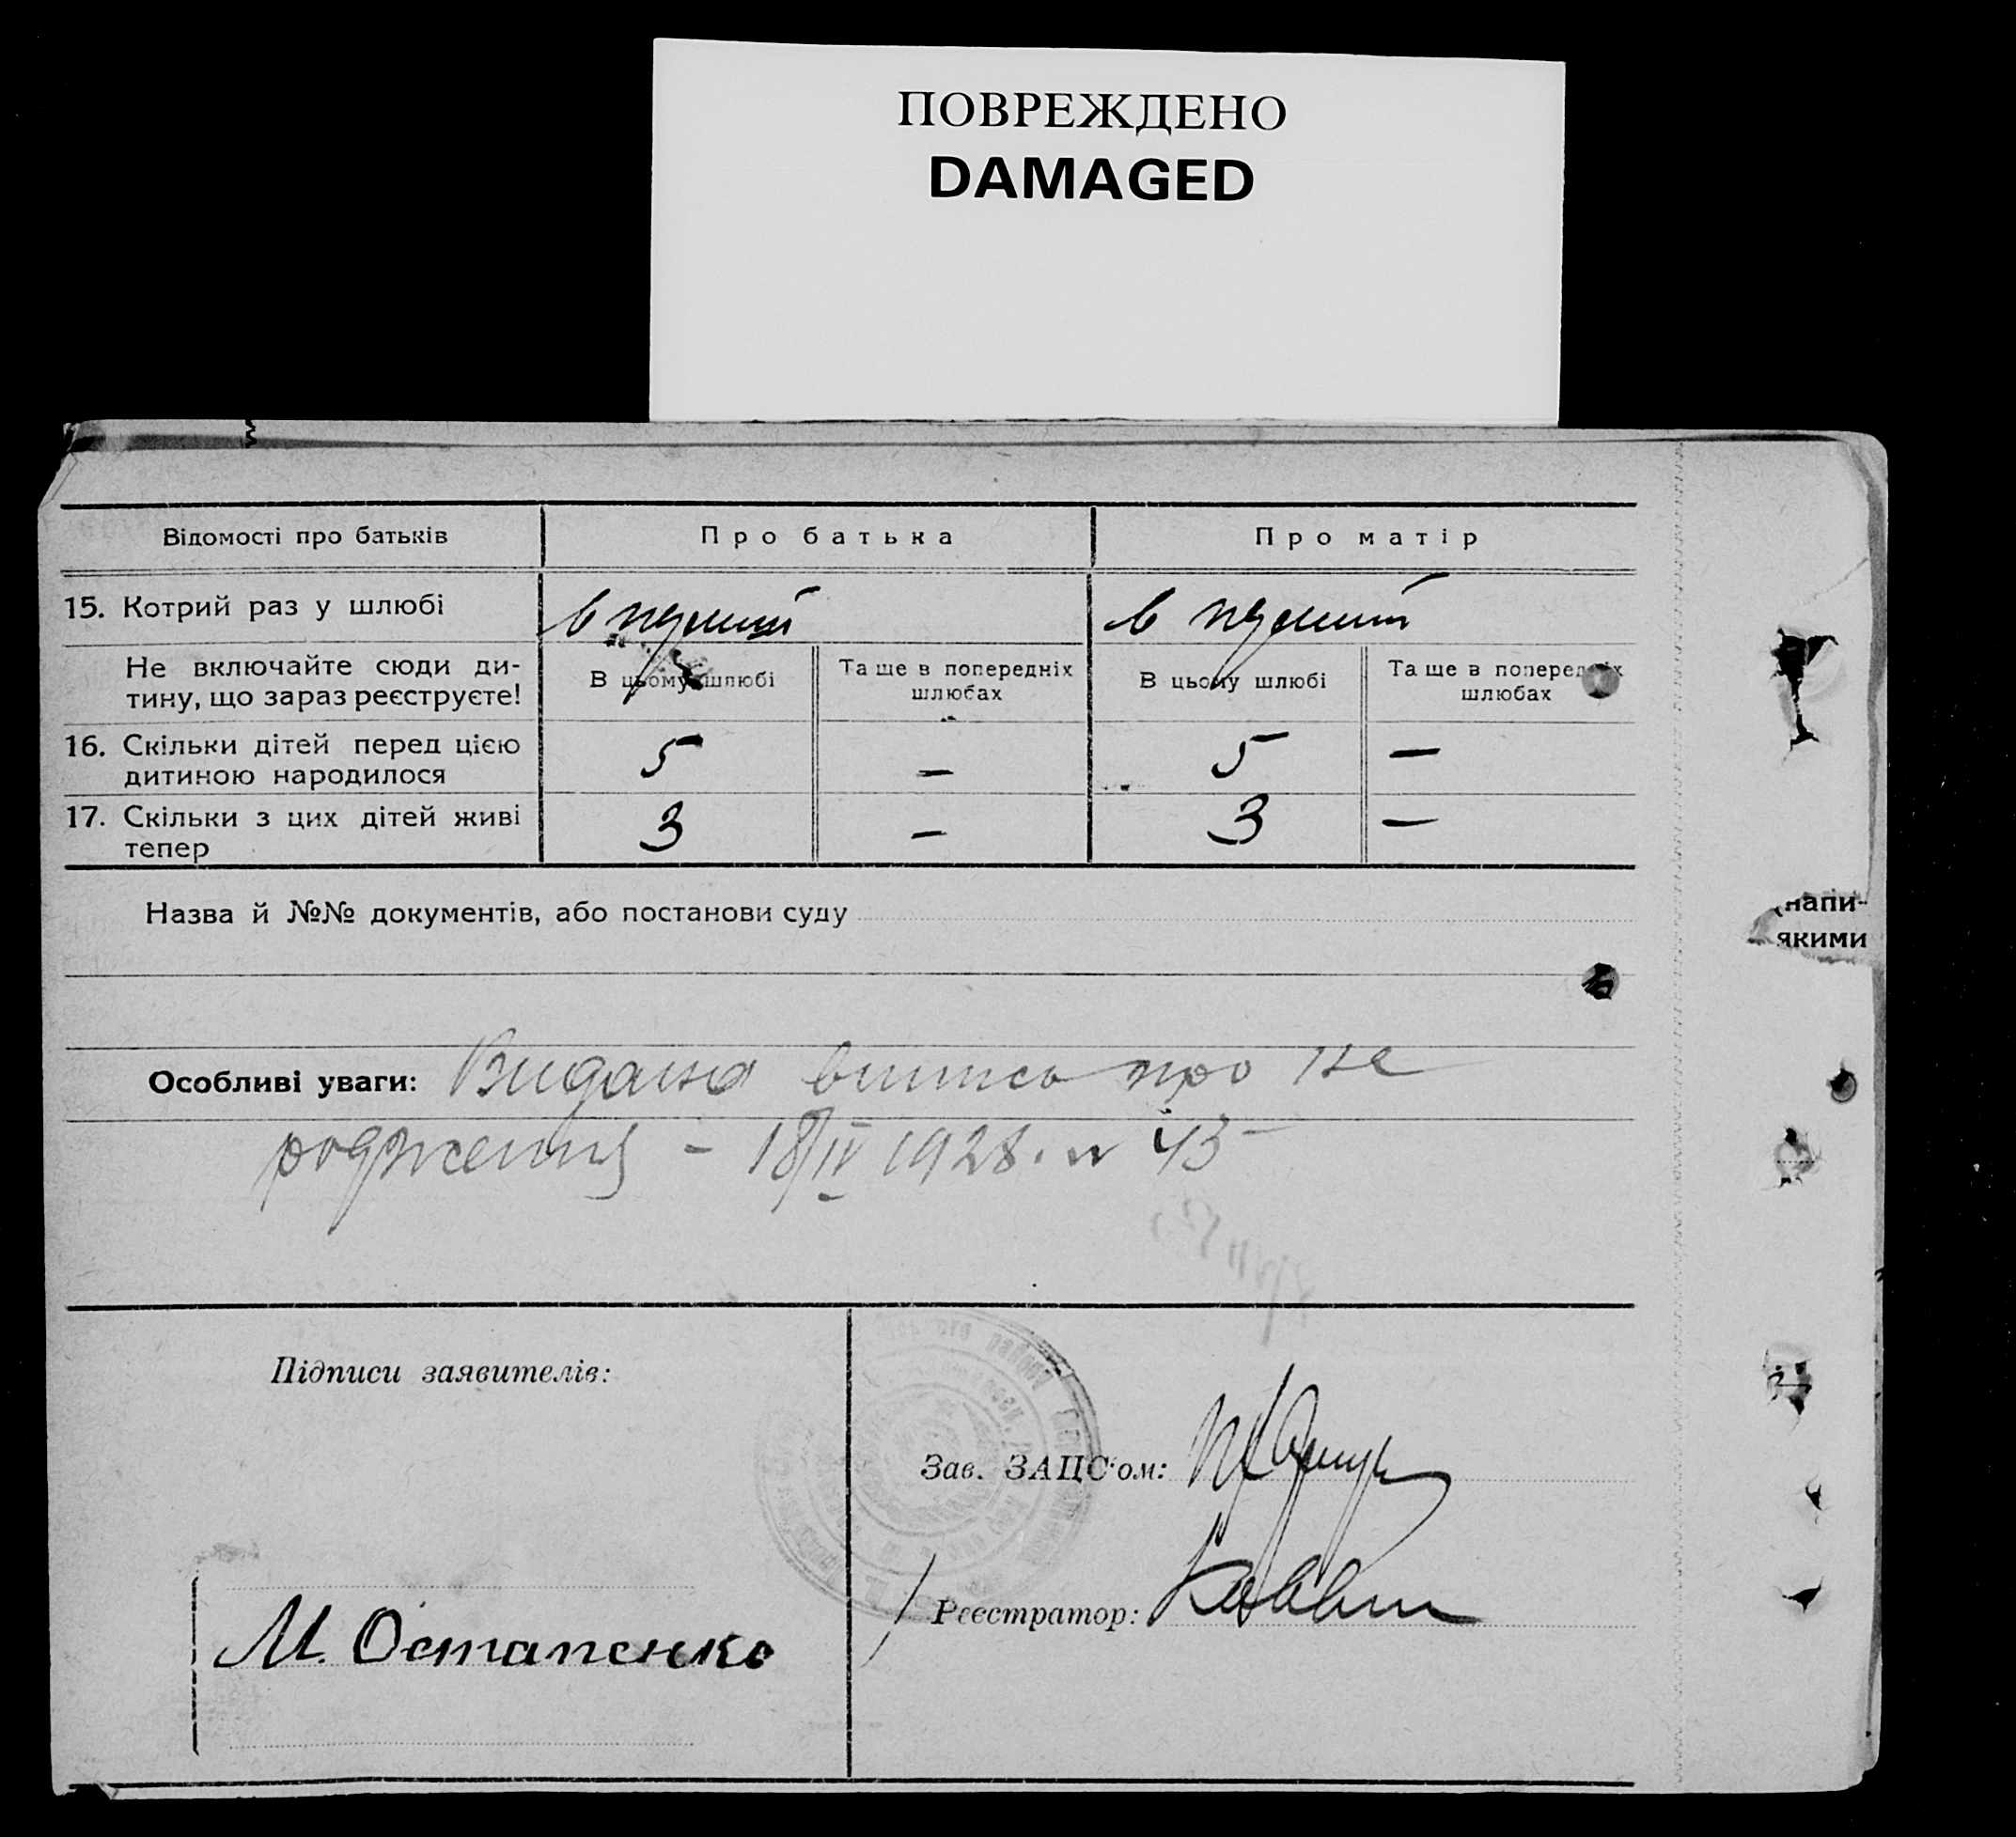 ПОВРЕЖДЕНО
DAMAGED
Відомості про батьків
Про батька
Про матір
15. Котрий раз у шлюбі
в перший
в перший
Не включайте сюди ди-
тину, що зараз реєструєте!
В цьому шлюбі
Та ще в попередніх
шлюбах
В цьому шлюбі
Та ще в попередніх
шлюбах
16. Скільки дітей перед цією
дитиною народилося
5
—
5
—
17. Скільки з цих дітей живі
тепер
3
—
3
—
Назва й №№ документів, або постанови суду
(напи-
якими
Особливі уваги: Видана випись про не
родження - 18/IV 1928. N 43
Підписи заявителів:
Зав. ЗАЦС'ом:
Реєстратор:
М. Остапенко